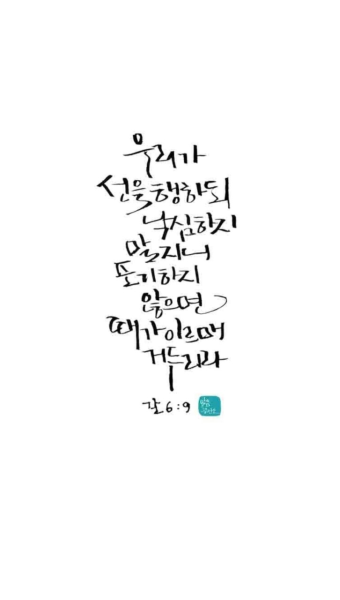 우리가
선을행하되
낙심하지
말지니
포기하지
않으면
때가이르매
거두리라
갈 6:9